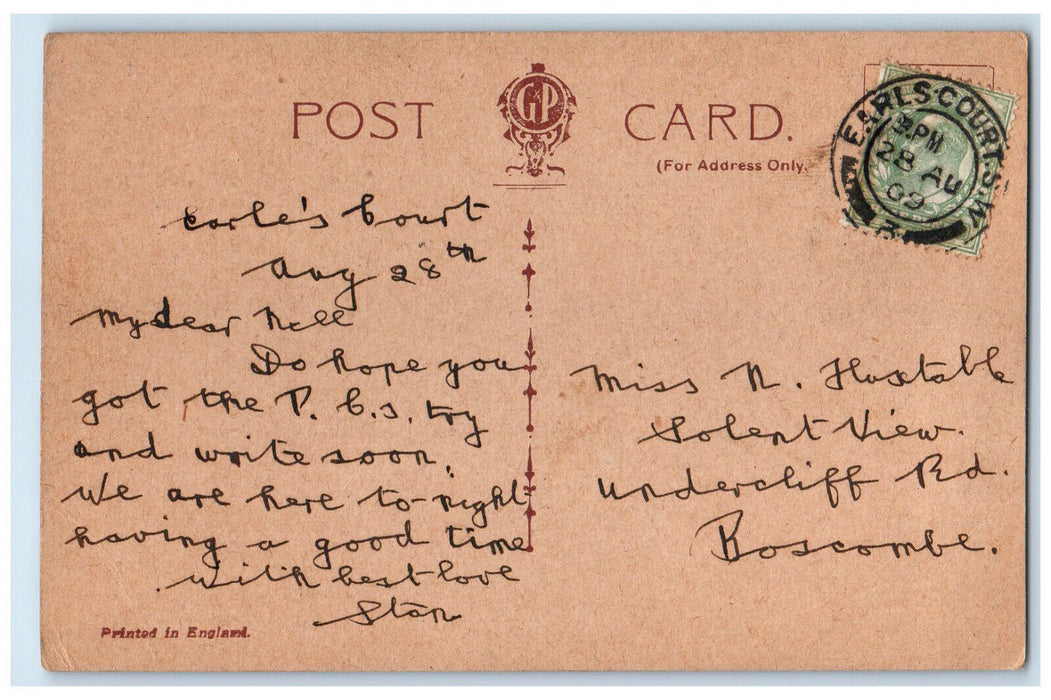 POST CARD.
G&P
(For Address Only.
EARLS COURT. S.W.
3. PM
28 AU
09
3
Earle's Court
Aug 28th
My dear Nell
Do hope you
got the P. C.s, try
and write soon.
We are here to-night
having a good time
with best love
Stan
Miss N. Huxtable
Solent View.
Undercliff Rd.
Boscombe.
Printed in England.